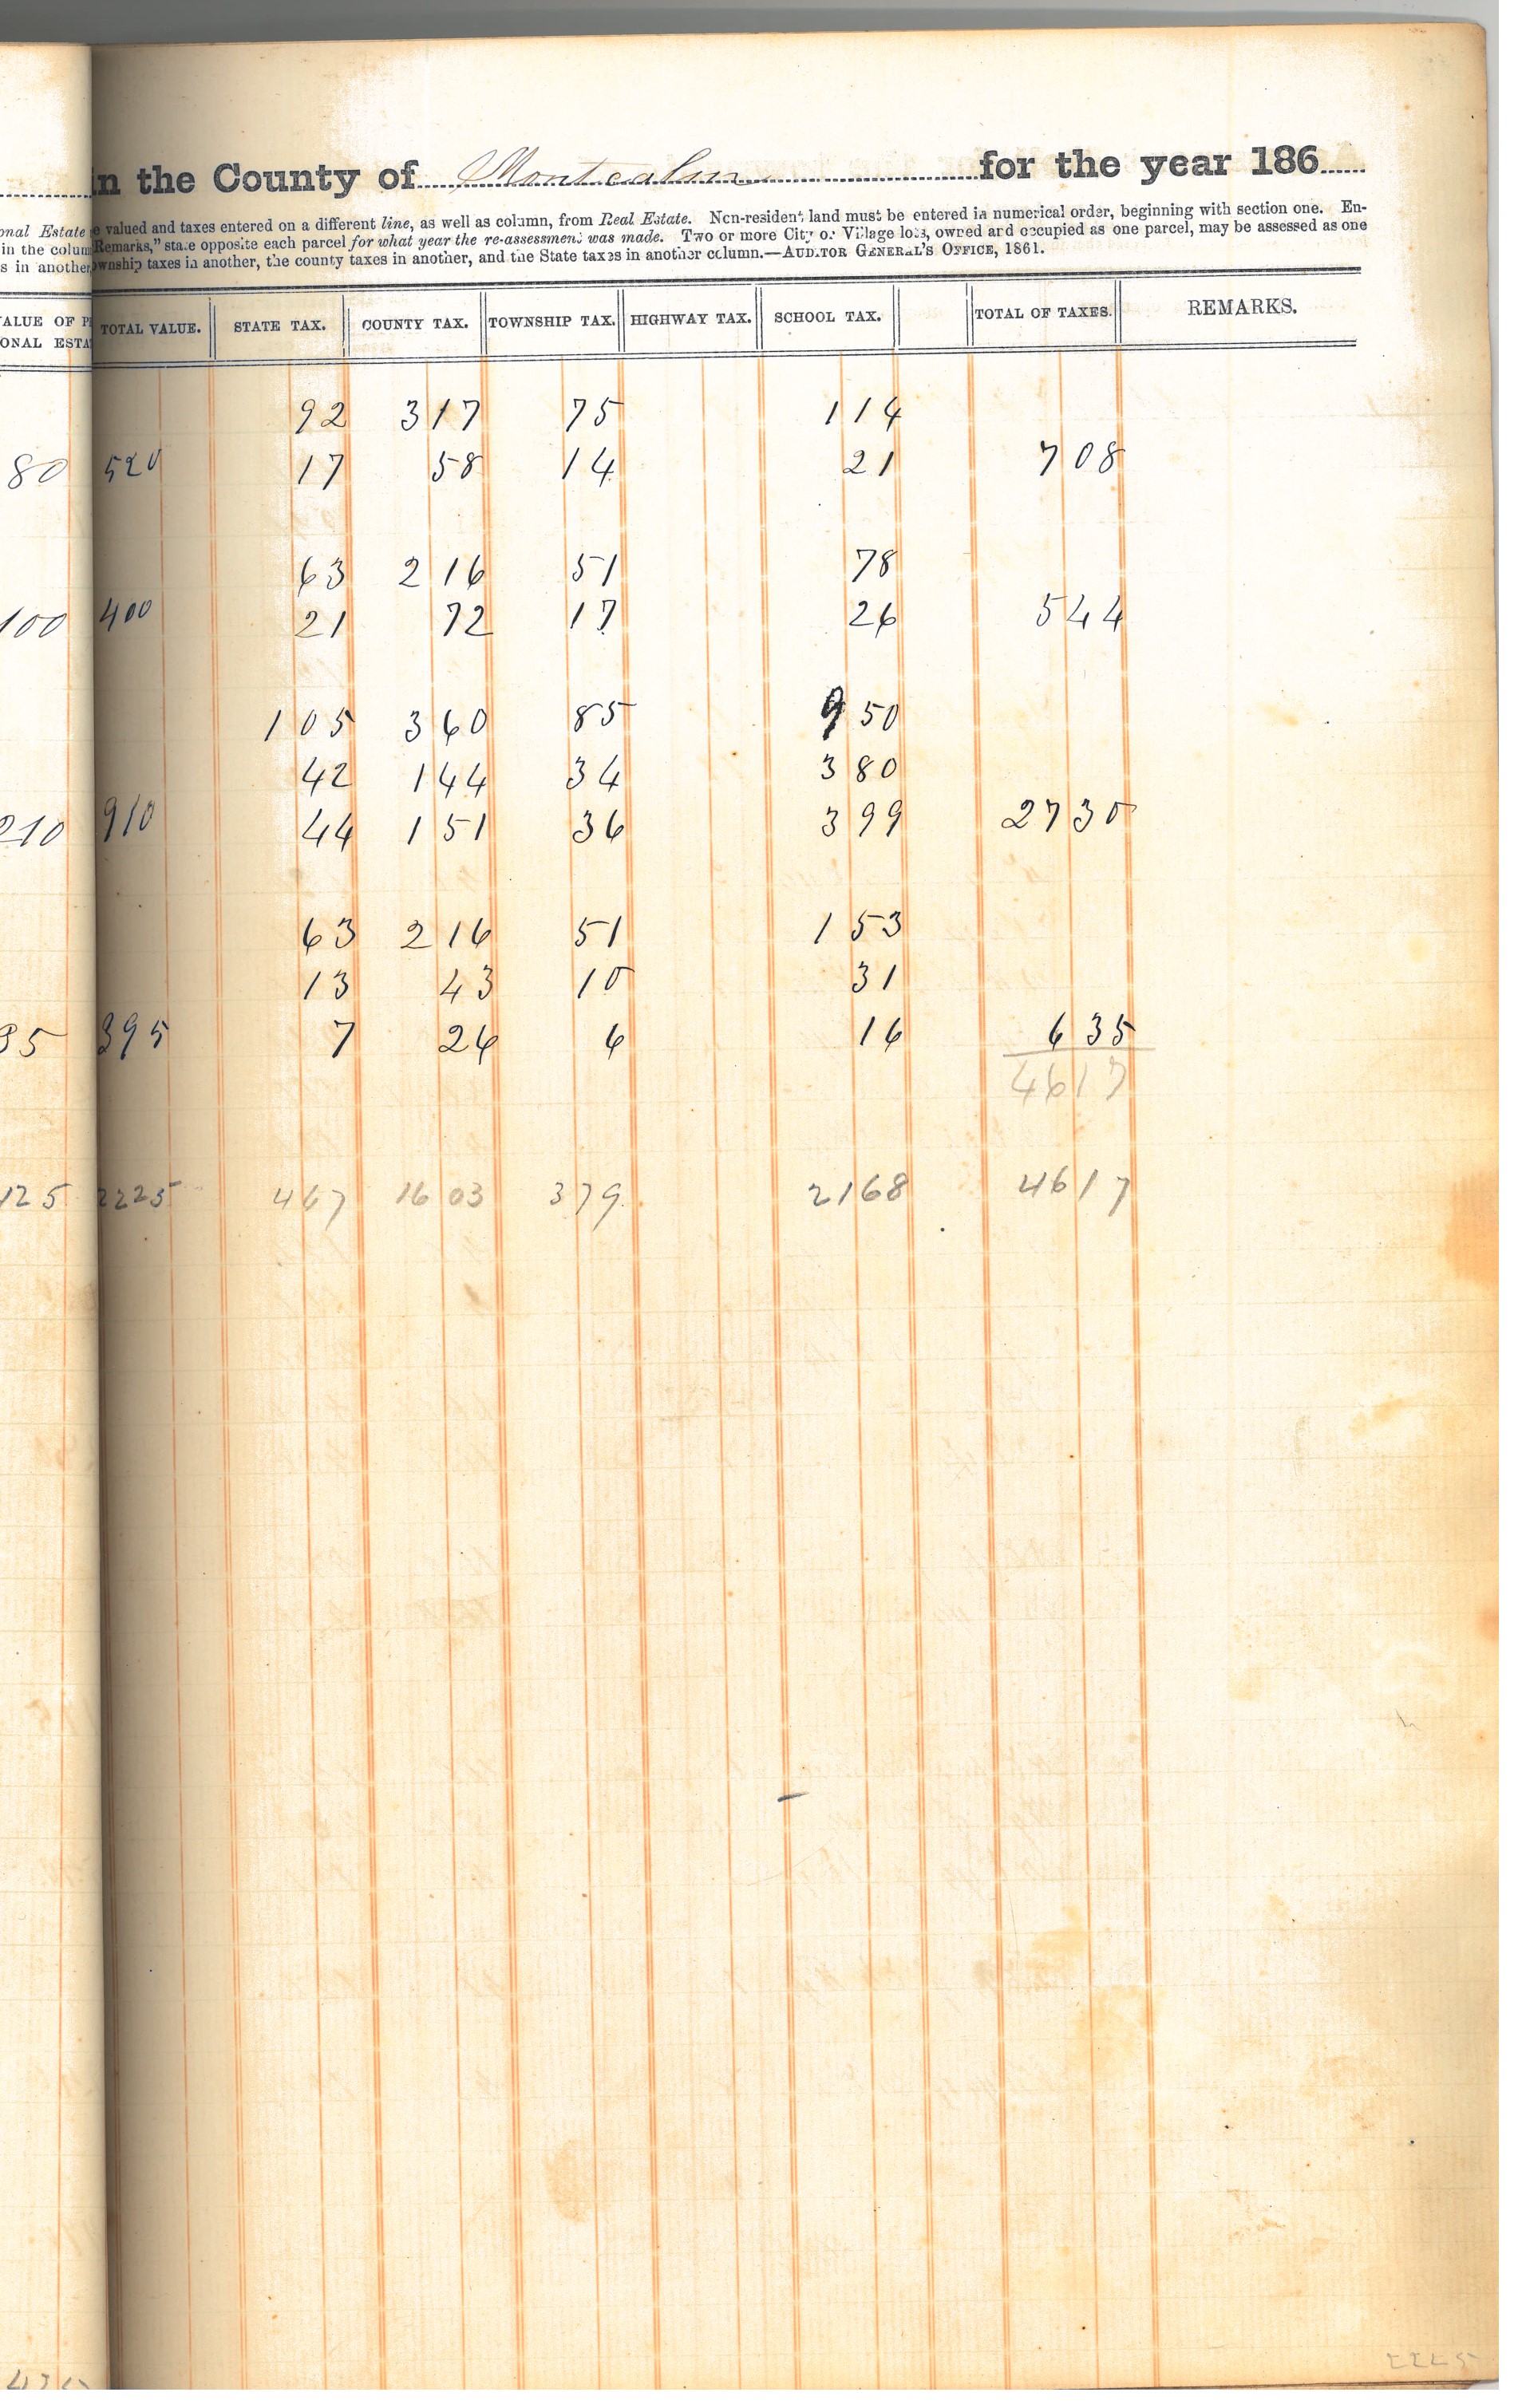 in the County of Montcalm for the year 186
onal Estate e valued and taxes entered on a different line, as well as column, from Real Estate. Non-resident land must be entered in numerical order, beginning with section one. En-
in the colum Remarks," state opposite each parcel for what year the re-assessment was made. Two or more City or Village lots, owned and occupied as one parcel, may be assessed as one
s in another ownship taxes in another, the county taxes in another, and the State taxes in another column.—AUDITOR GENERAL'S OFFICE, 1861.
VALUE OF P TOTAL VALUE. STATE TAX. COUNTY TAX. TOWNSHIP TAX. HIGHWAY TAX. SCHOOL TAX. TOTAL OF TAXES. REMARKS.
ONAL ESTA
92 3 17 75 1 14
80 520 17 58 14 21 7 08
63 2 16 51 78
100 400 21 72 17 26 5 44
1 05 3 60 85 9 50
42 1 44 34 3 80
210 910 44 1 51 36 3 99 27 30
63 2 16 51 1 53
13 43 10 31
35 395 7 26 6 16 6 35
46 17
125 2225 4 67 16 03 3 79 21 68 46 17